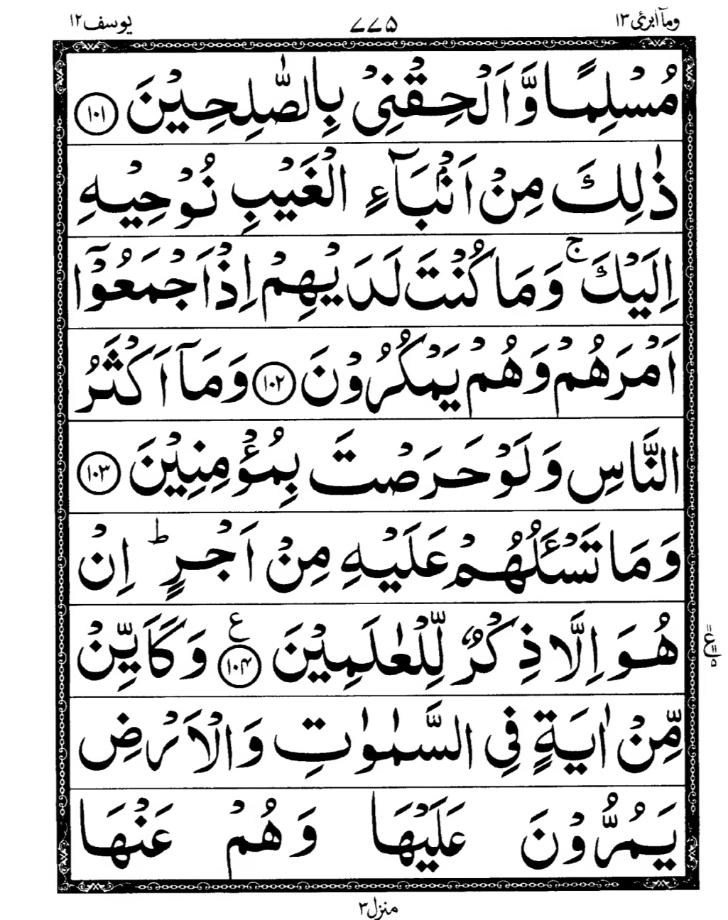 وما ابرئ ١٣ ٧٧۵ يوسف ١٢
مُسْلِمًا وَّاَلْحِقْنِيْ بِالصّٰلِحِيْنَ ١٠١
ذٰلِكَ مِنْ اَنْۢبَآءِ الْغَيْبِ نُوْحِيْهِ
اِلَيْكَ ۚ وَمَا كُنْتَ لَدَيْهِمْ اِذْ اَجْمَعُوْٓا
اَمْرَهُمْ وَهُمْ يَمْكُرُوْنَ ١٠٢ وَمَآ اَكْثَرُ
النَّاسِ وَلَوْ حَرَصْتَ بِمُؤْمِنِيْنَ ١٠٣
وَمَا تَسْـَٔلُهُمْ عَلَيْهِ مِنْ اَجْرٍ ؕ اِنْ
هُوَ اِلَّا ذِكْرٌ لِّلْعٰلَمِيْنَ ١٠۴ ع وَكَاَيِّنْ
١١ ع ١١ ۵
مِّنْ اٰيَةٍ فِي السَّمٰوٰتِ وَالْاَرْضِ
يَمُرُّوْنَ عَلَيْهَا وَهُمْ عَنْهَا
منزل ٣